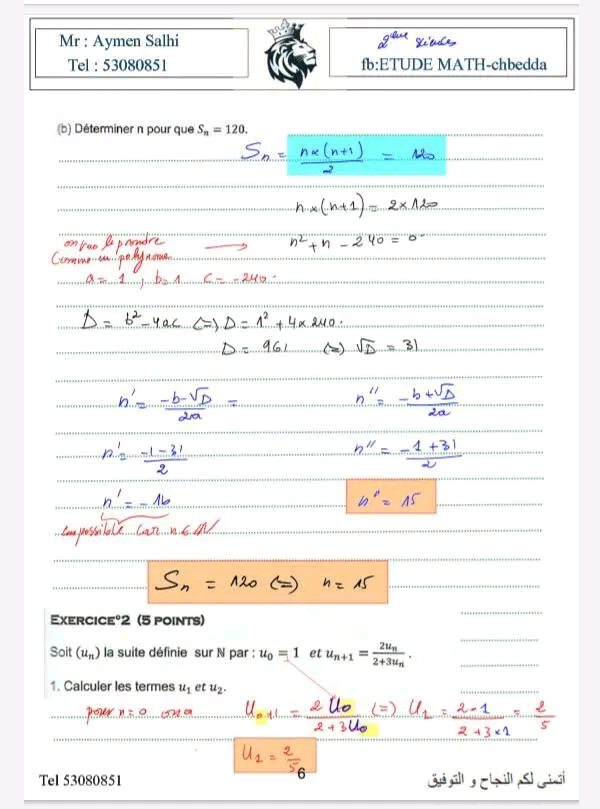 Mr : Aymen Salhi
Tel : 53080851
2ème sciences
fb:ETUDE MATH-chbedda
(b) Déterminer n pour que Sₙ = 120.
Sₙ = n×(n+1)/2 = 120
n×(n+1) = 2×120
on va le prendre
Comme un polynome
n² + n - 240 = 0
a = 1 ; b = 1 c = -240
D = b² - 4ac (=) D = 1² + 4×240
D = 961 (=) √D = 31
n' = (-b-√D)/2a = n'' = (-b+√D)/2a
n' = (-1-31)/2 n'' = (-1+31)/2
n' = -16 n'' = 15
impossible car n ∈ ℕ
Sₙ = 120 (=) n = 15
EXERCICE°2 (5 POINTS)
Soit (uₙ) la suite définie sur ℕ par : u₀ = 1 et uₙ₊₁ = 2uₙ/(2+3uₙ) .
1. Calculer les termes u₁ et u₂.
pour n=0 on a U₀₊₁ = 2U₀/(2+3U₀) (=) U₁ = (2×1)/(2+3×1) = 2/5
U₁ = 2/5
6
Tel 53080851
أتمنى لكم النجاح و التوفيق